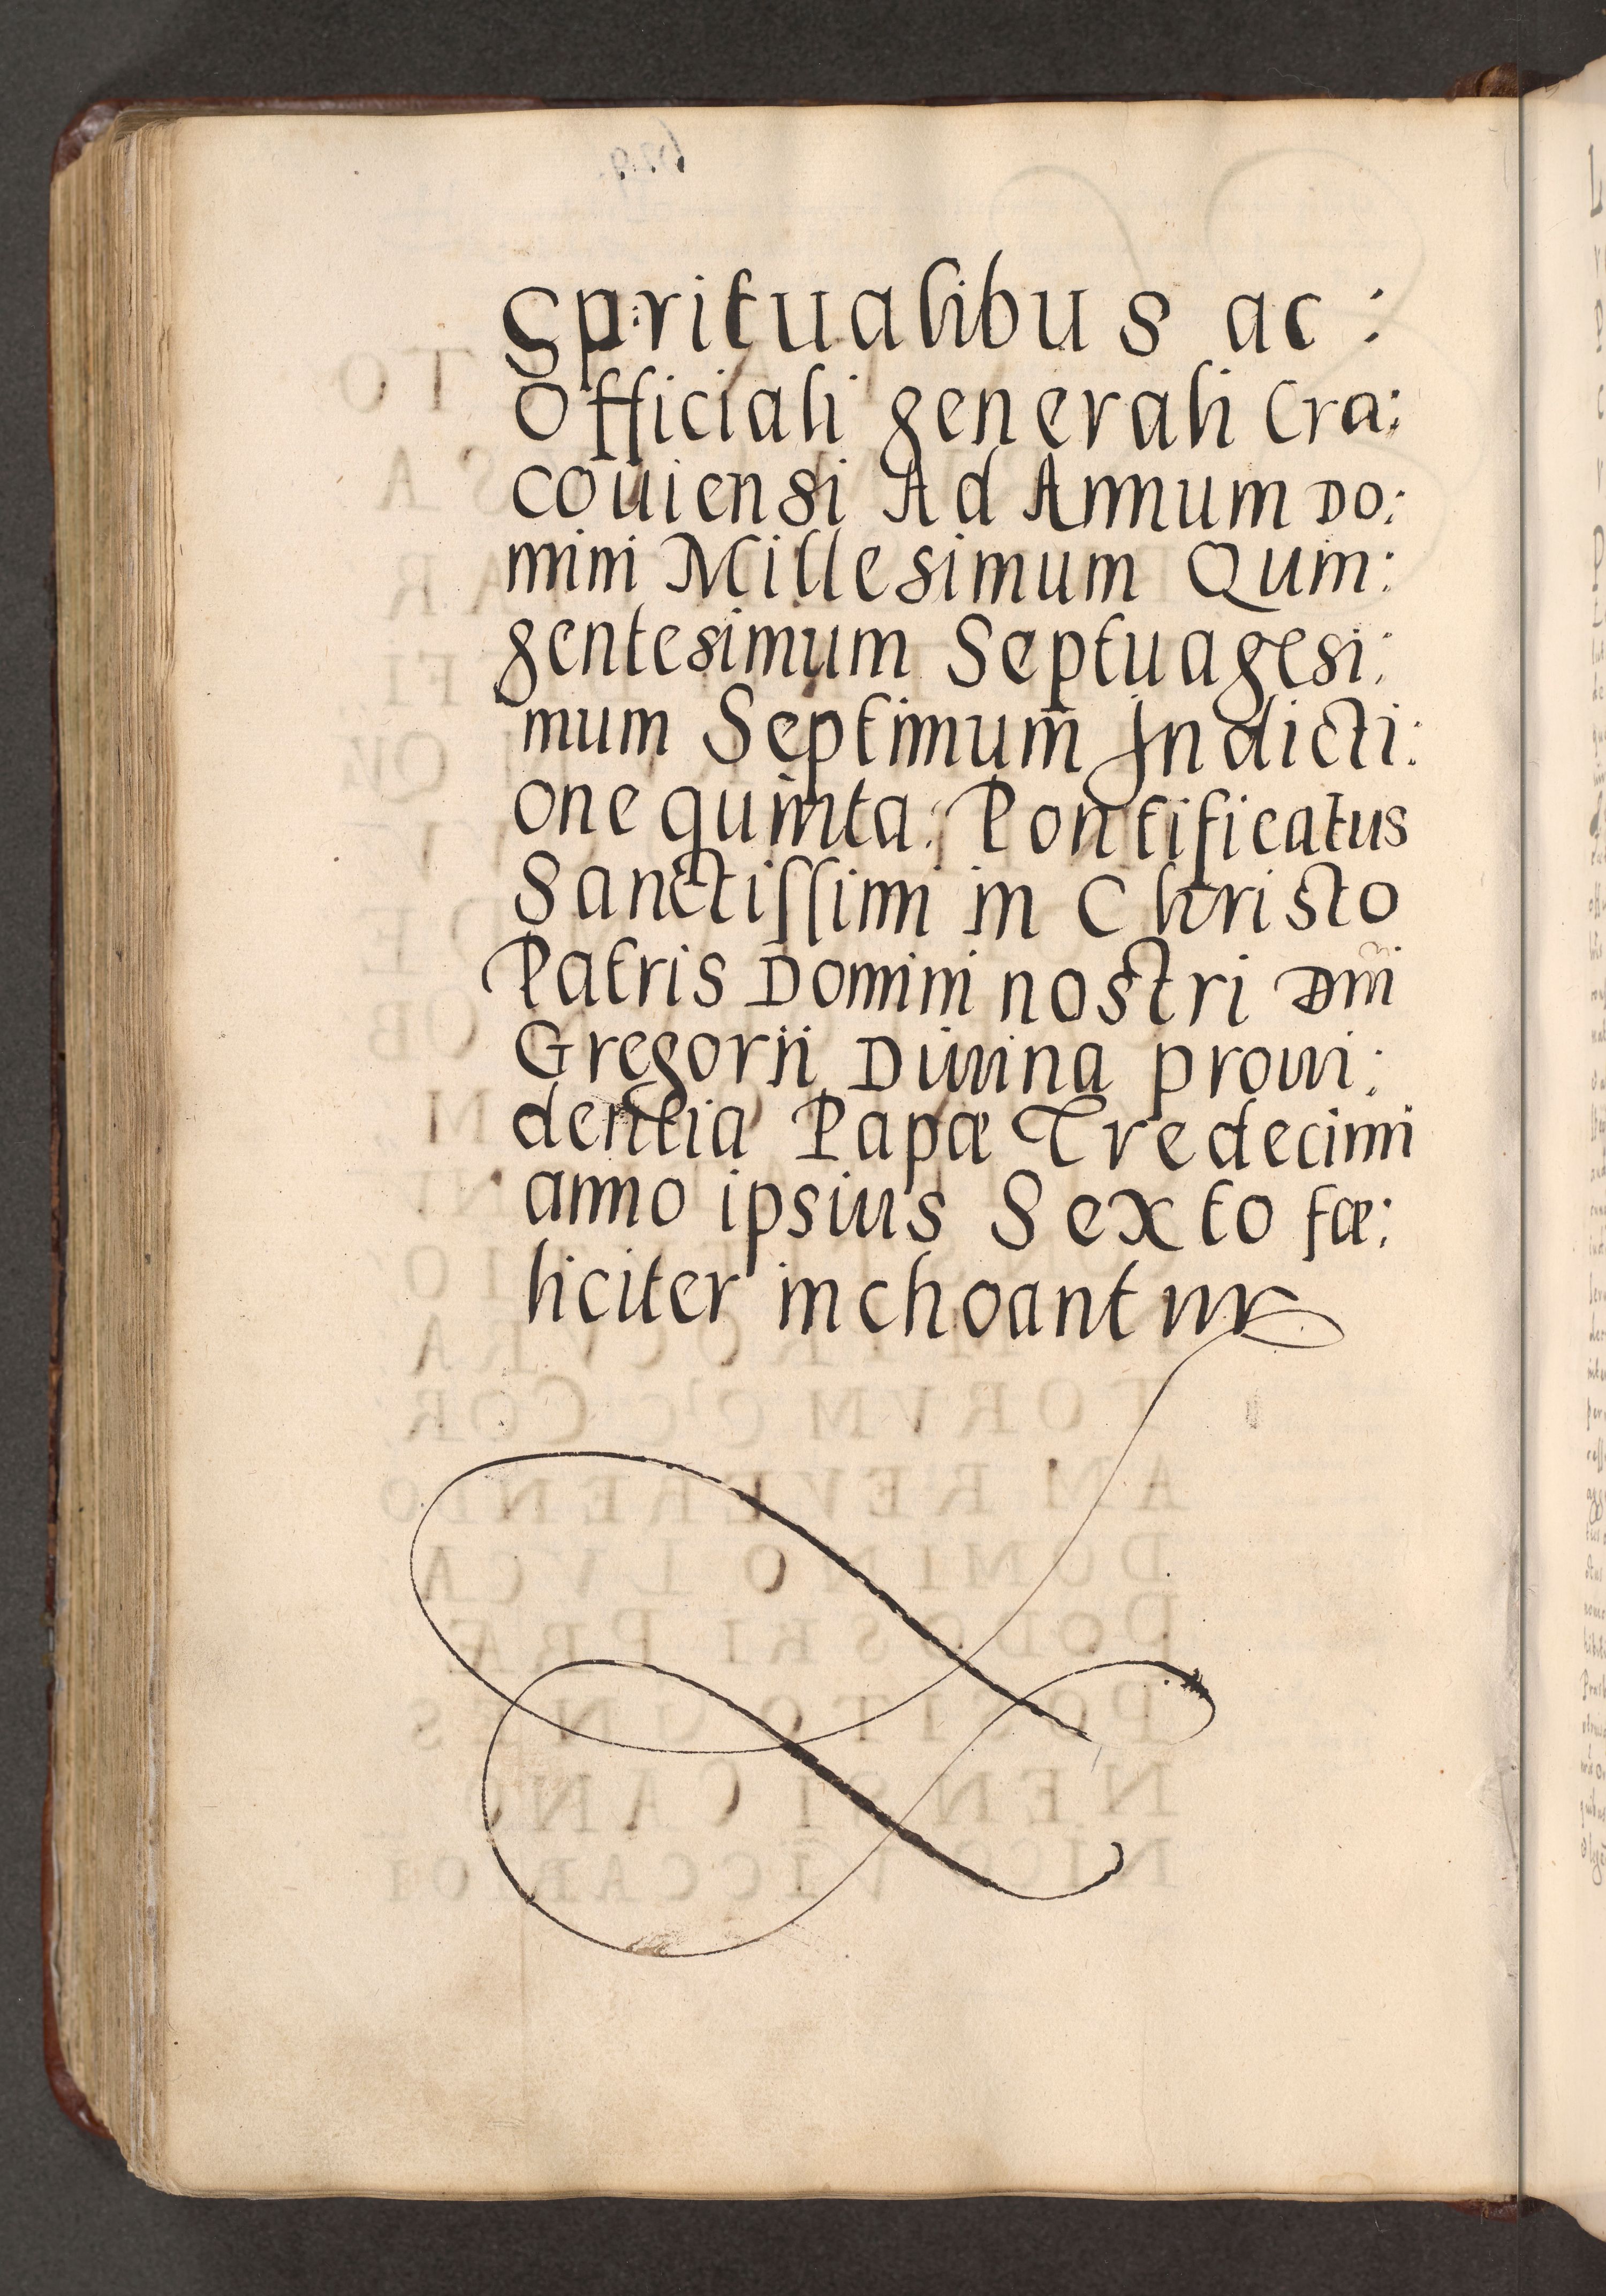 Sp:ritualibus ac :
Officiali generali Cra:
couiensi Ad Annum Do:
mini Millesimum Quin:
gentesimum Septuagesi:
mum Septimum Indicti:
one quinta: Pontificatus
Sanctiſſimi in Christo
Patris Domini nostri Dm̄i
Gregorii Diuina proui:
dentia Papæ Tredecimi
anno ipsius Sexto fæ:
liciter inchoantur